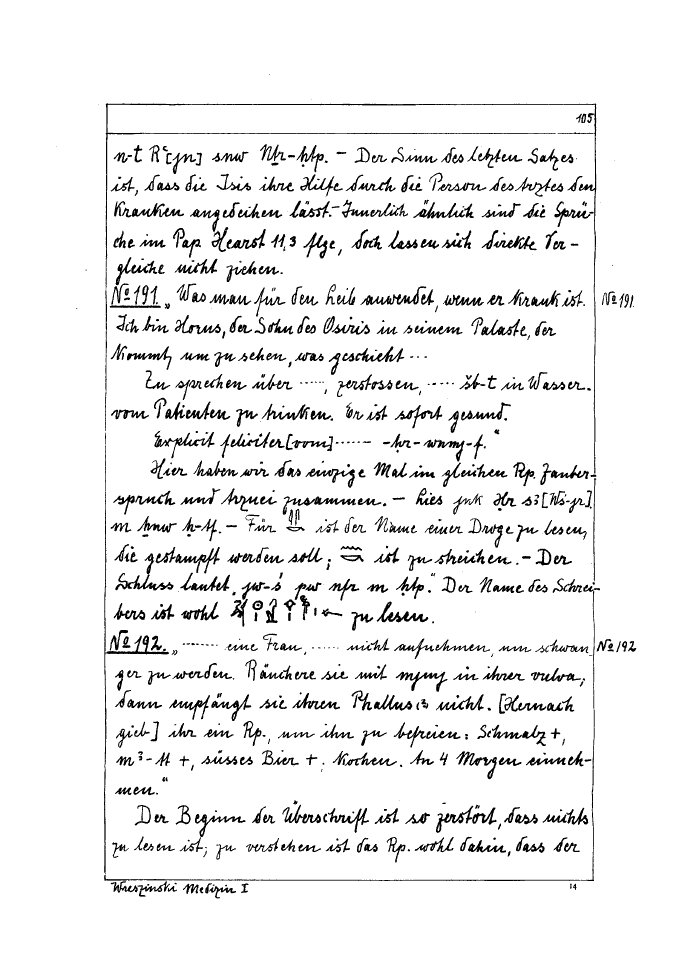 105
n-t Rʿ[jn] snw Nfr-ḥtp. – Der Sinn des letzten Satzes
ist, dass die Isis ihre Hilfe durch die Person des Arztes den
Kranken angedeihen lässt. – Innerlich ähnlich sind die Sprü-
che im Pap Hearst 11,3 flge, doch lassen sich direkte Ver-
gleiche nicht ziehen.
№ 191. „Was man für den Leib anwendet, wenn er krank ist. № 191.
Ich bin Horus, der Sohn des Osiris in seinem Palaste, der
kommt, um zu sehen, was geschieht ...
Zu sprechen über ....., zerstossen, ..... šb-t in Wasser.
vom Patienten zu trinken. Er ist sofort gesund.
Explicit feliciter [vom] ....... -ḥr-wnmy-f.“
Hier haben wir das einzige Mal im gleichen Rp. Zauber-
spruch und Arznei zusammen. – Lies jnk Ḥr sꜣ [Ws-jr]
m ẖnw ḥ-tf. – Für ist der Name einer Droge zu lesen,
die gestampft werden soll; ist zu streichen. – Der
Schluss lautet „jw-ś pw nfr m ḥtp.“ Der Name des Schrei-
bers ist wohl zu lesen.
№ 192. „....... eine Frau, ..... nicht aufnehmen, um schwan- № 192
ger zu werden. Räuchere sie mit mjmj in ihrer vulva,
dann empfängt sie ihren Phallus(?) nicht. [Hernach
gieb] ihr ein Rp., um ihn zu befreien: Schmalz +,
mꜣ-tt +, süsses Bier +; kochen. An 4 Morgen einneh-
men.“
Der Beginn der Überschrift ist so zerstört, dass nichts
zu lesen ist; zu verstehen ist das Rp. wohl dahin, dass der
Wreszinski Medizin I 14